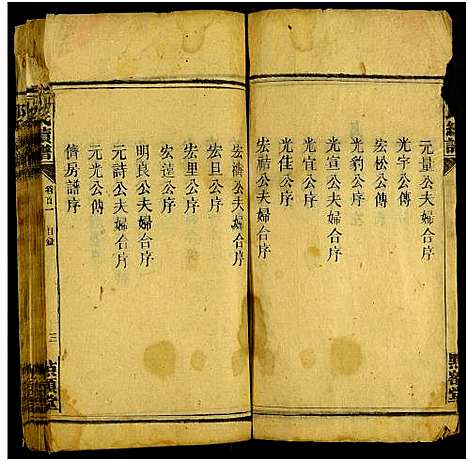 元量公夫婦合序
光宇公傳
宏松公傳
光豹公序
光宣公序
光宣公夫婦合序
光佳公序
宏祜公夫婦合序
宏濤公夫婦合序
宏旦公序
宏里公序
宏達公序
明良公夫婦合序
元詩公夫婦合序
元光公傳
儕房譜序
續譜
卷首一 目錄
三